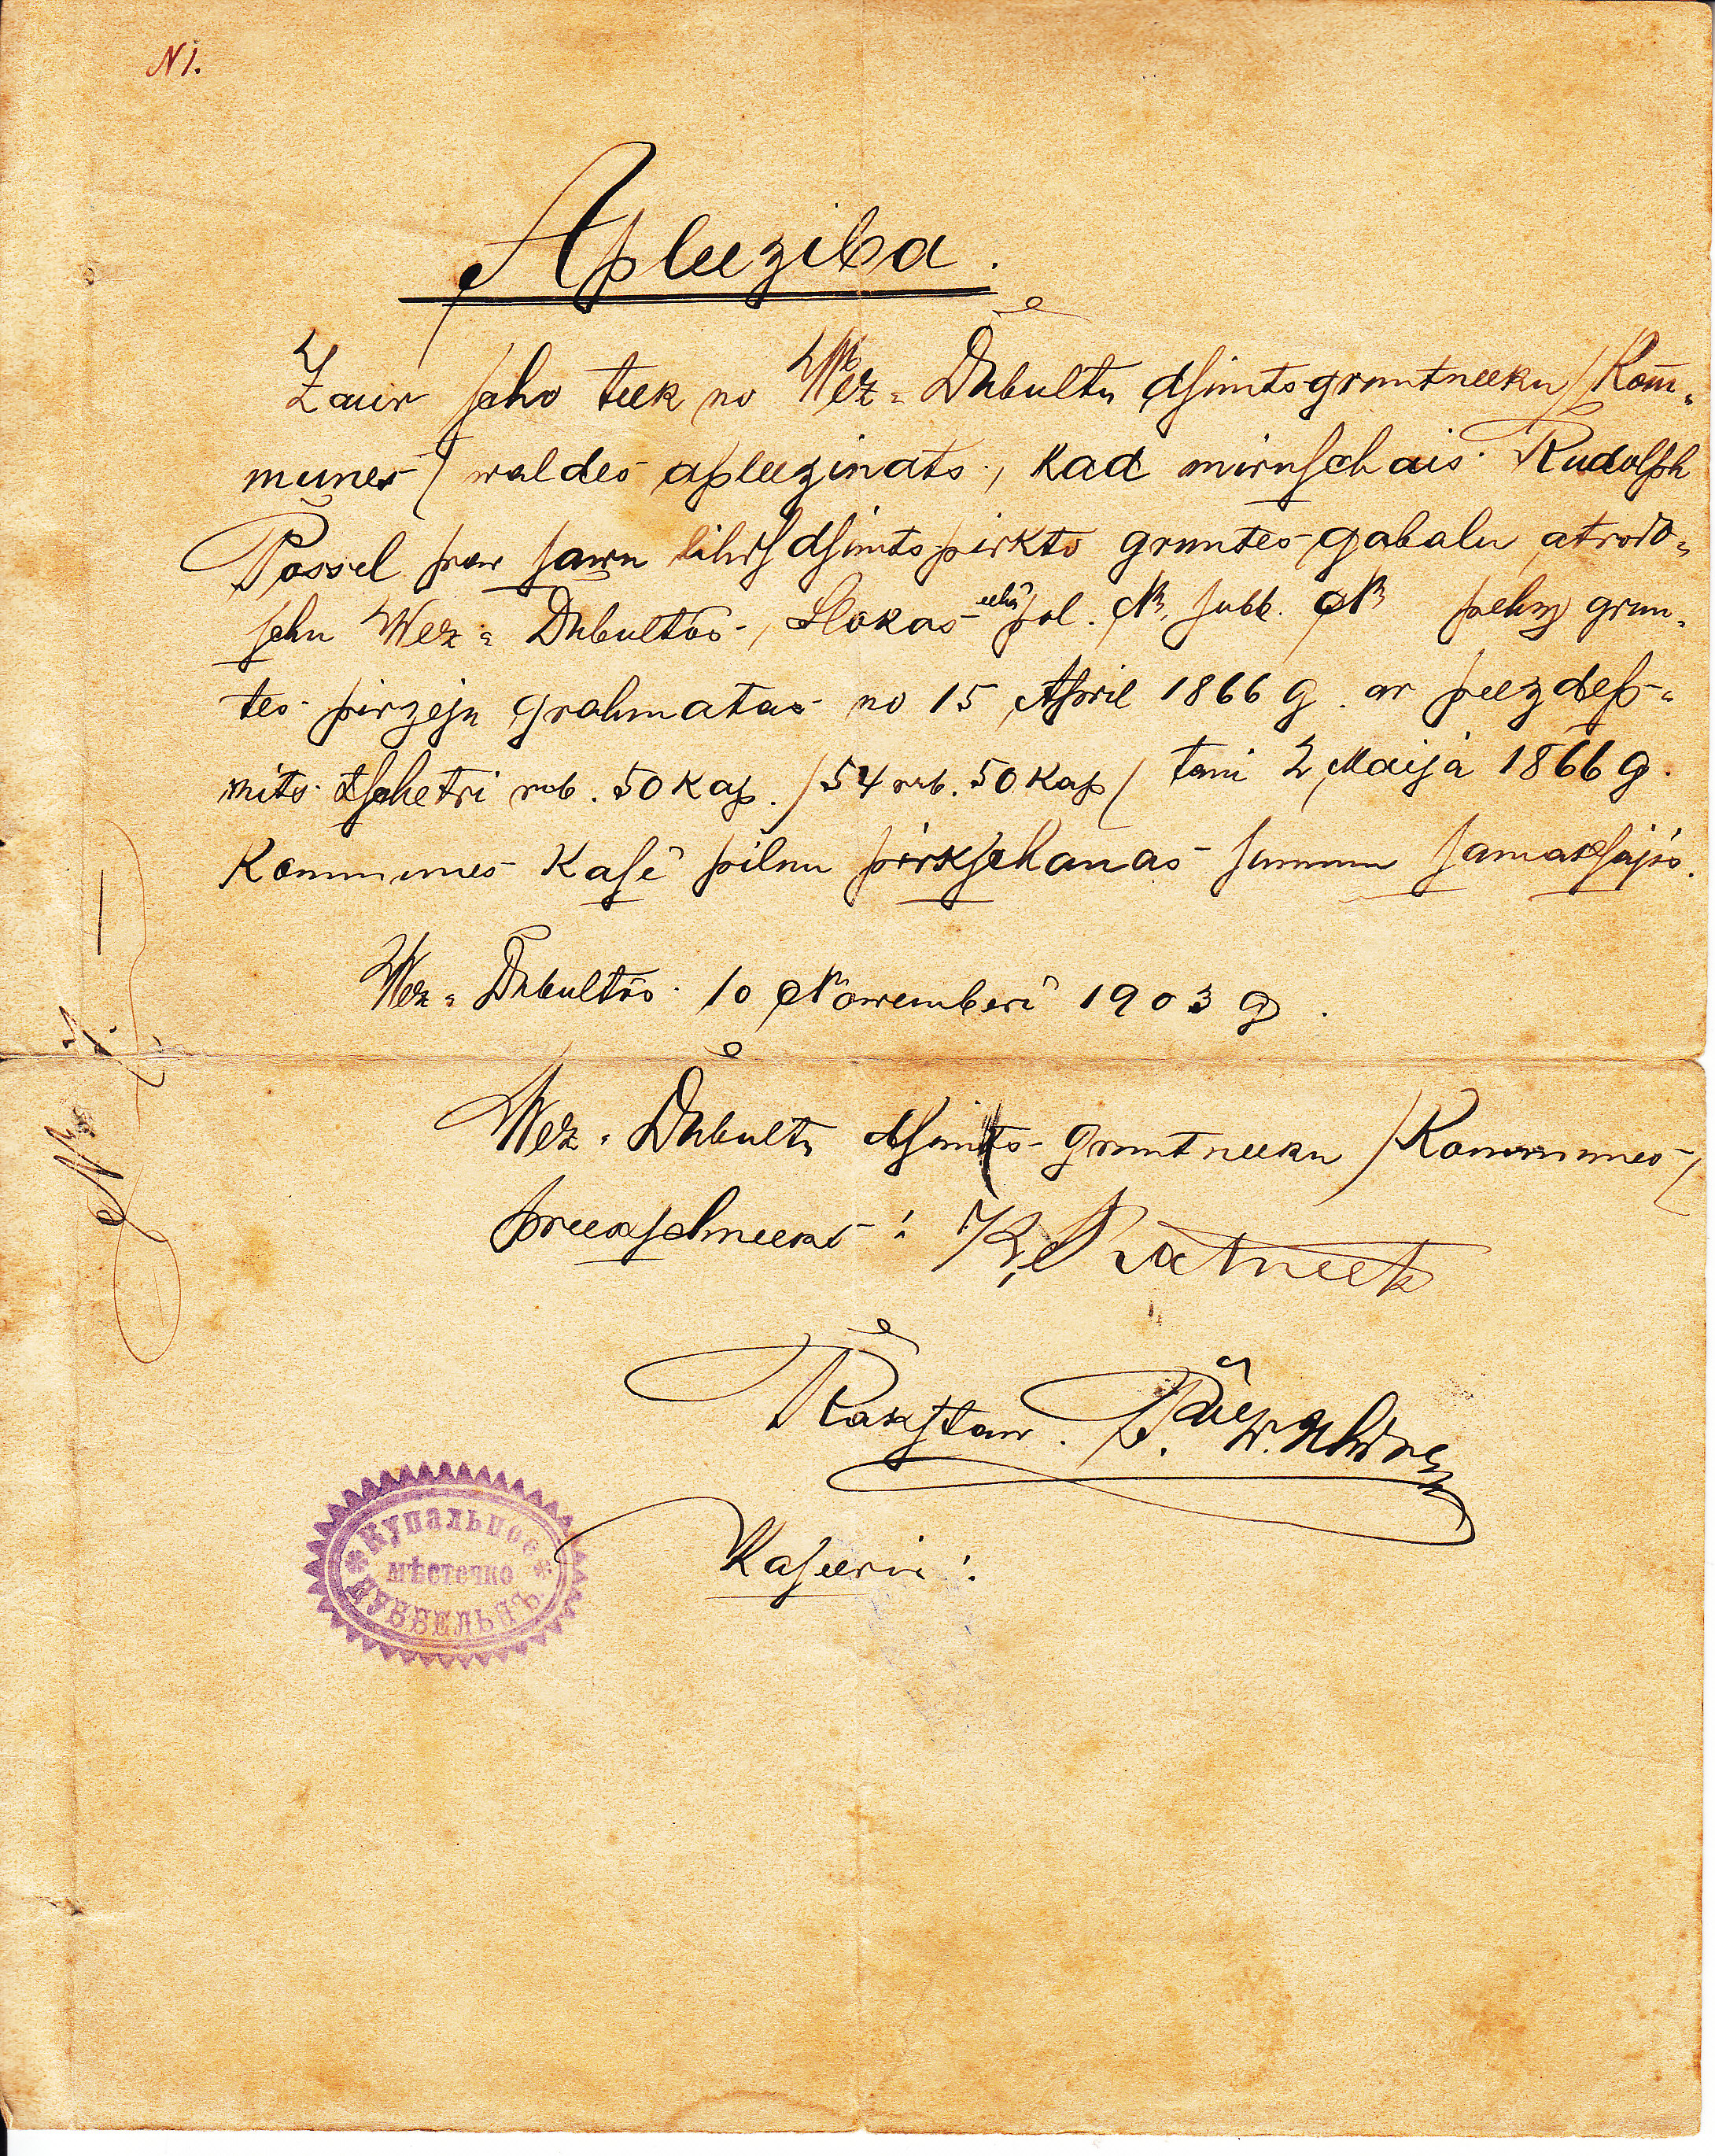 N 1.
Apleeziba.
Zaur scho teek no Wez-Dubultu dsimtsgruntneeku /Kom-
munes/ waldes apleezinats, kad miruschais Rudolph
Possel par sawu lihds dsimtspirkto gruntes-gabalu atrodo-
schu Wez-Dubultos, Slokas pol. № subb. № pehz grun-
tes-pirzeju grahmatas no 15 April 1866 g. ar peezdes-
mits tschetri rub. 50 kap. /54 rub. 50 kap/ tani 2 Maija 1866 g.
Kommunes Kasê pilnu pirkschanas summu samaksajis.
Wez-Dubultos 10 Nowemberi 1903 g.
Wez-Dubultu dsimts-gruntneeku /Kommunes/
preekschneeks: K. Ratneek
Rakstaw.
Kaseeris:
№ 1. —
* Купальное *
мѣстечко
ДУББЕЛЬНЪ